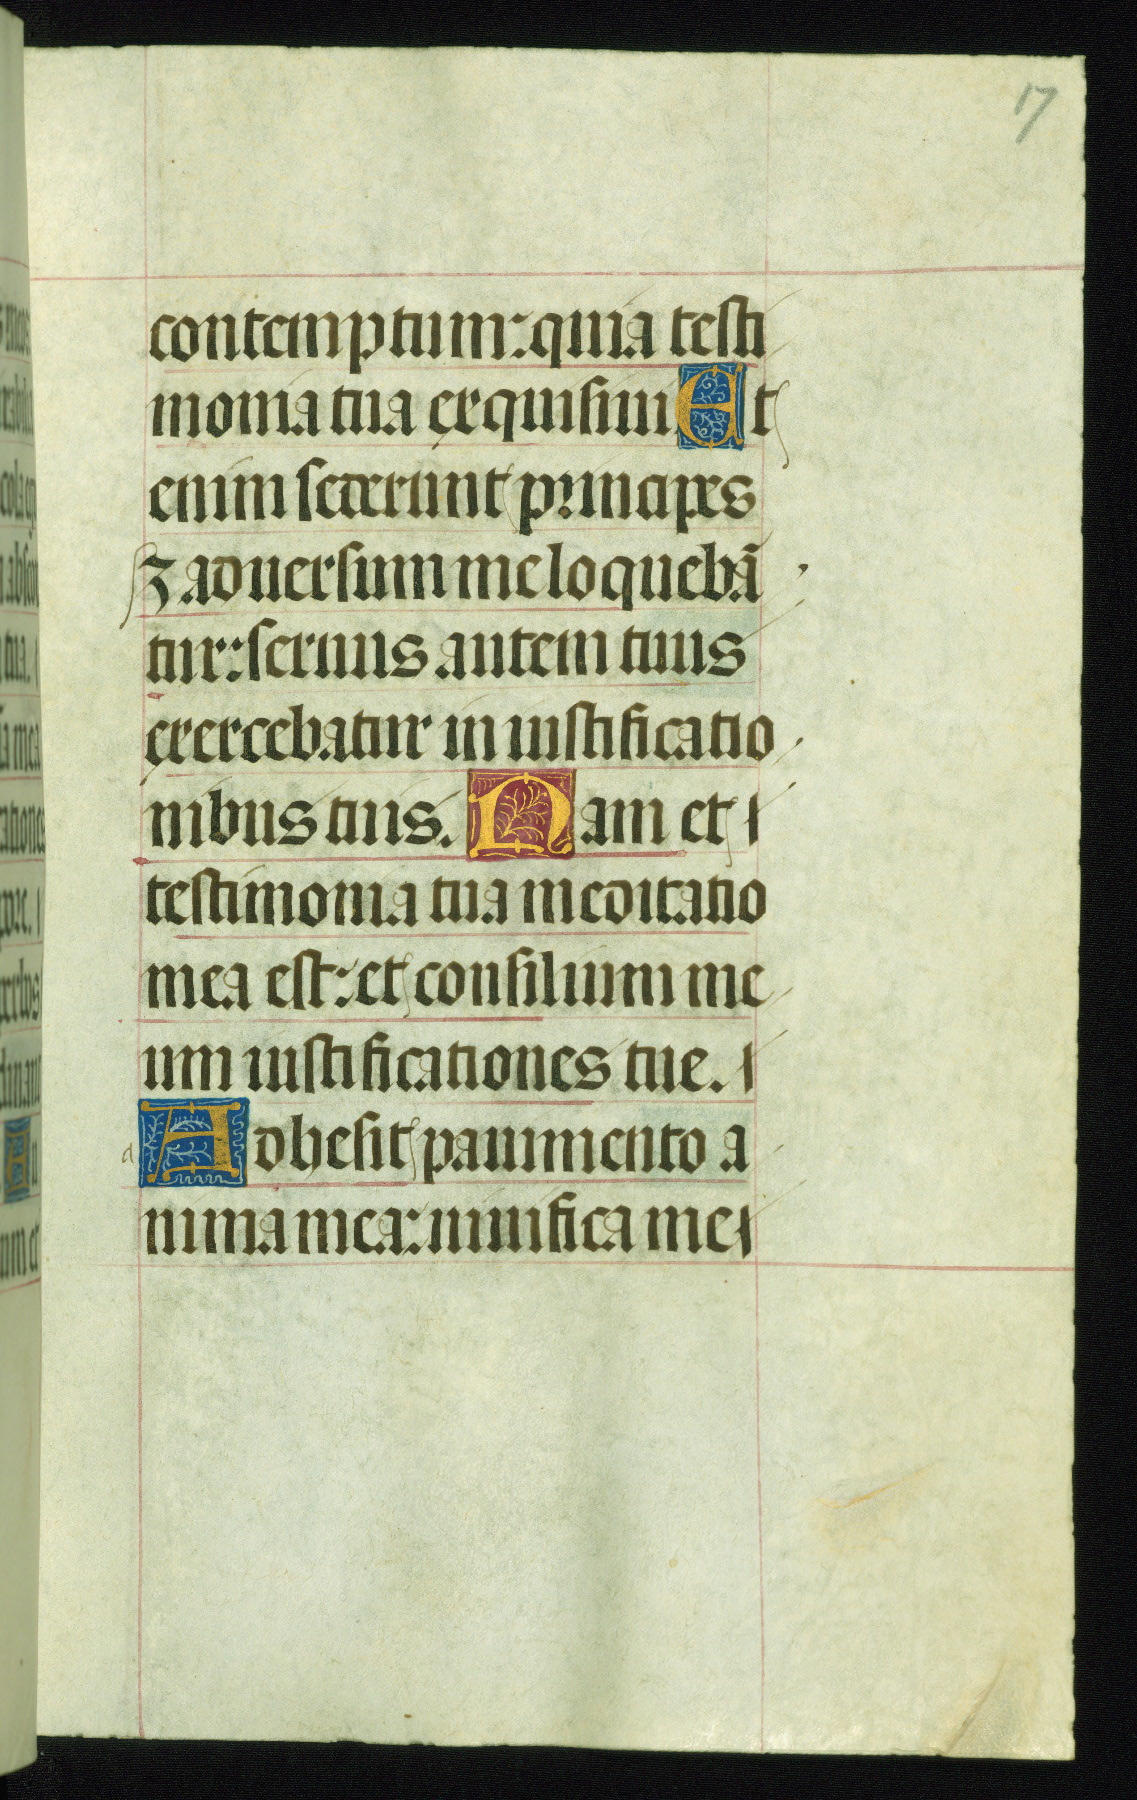 17
contemptum: quia testi
monia tua exquisiui Et
enim sederunt principes
⁊ aduersum me loquebã
tur: seruus autem tuus
exercebatur in iustificatio
nibus tuis. Nam et
testimonia tua meditatio
mea est: et consilium me
um iustificationes tue.
Adhesit pauimento a
nima mea: uiuifica me